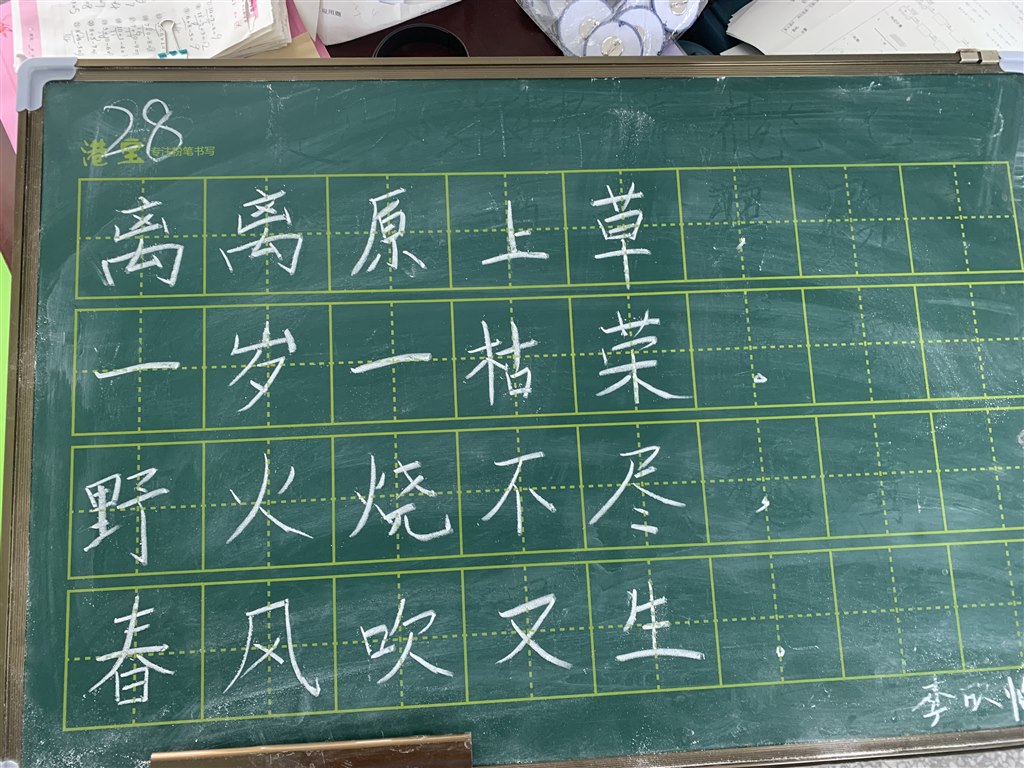 应用题
28
港至 专注粉笔书写
离离原上草，
一岁一枯荣。
野火烧不尽，
春风吹又生。
李